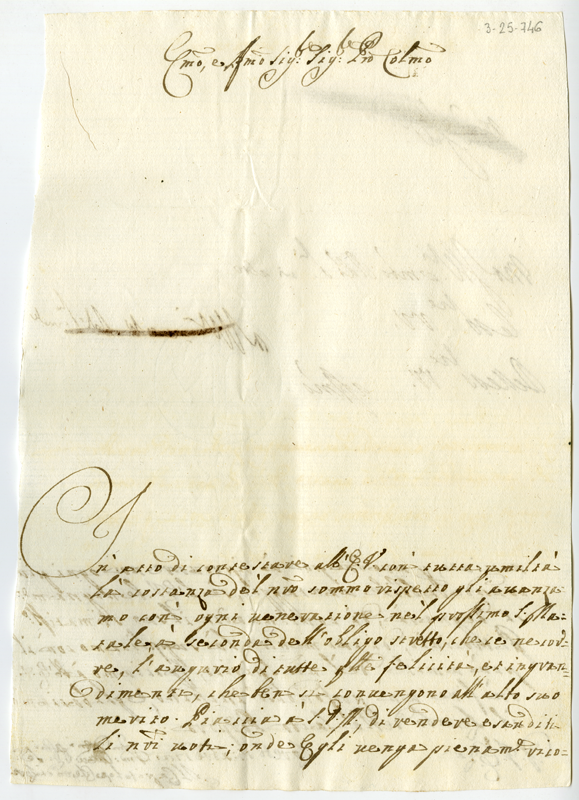 3-25-746
Emo, e Rmo Sig.r Sig.r Pro Colmo
In atto di contestare all'E.V. con tutta umiltà
la costanza del nro sommo rispetto gli avanza
mo con ogni venerazione nel prossimo S. Na
tale, à seconda dell'obligo stretto, che ce ne cor
re, l'augurio di tutte felicità, et ingran=
dimenti, che ben si convengono all'alto suo
merito. Piaccia à S.D.M. di rendere esauditi
li nri voti; onde Egli venga pienamte